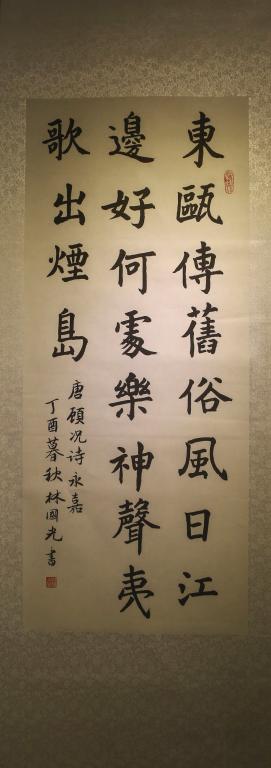 東甌傳舊俗風日江
邊好何處樂神聲夷
歌出煙島
唐顾况诗永嘉
丁酉暮秋林國光書